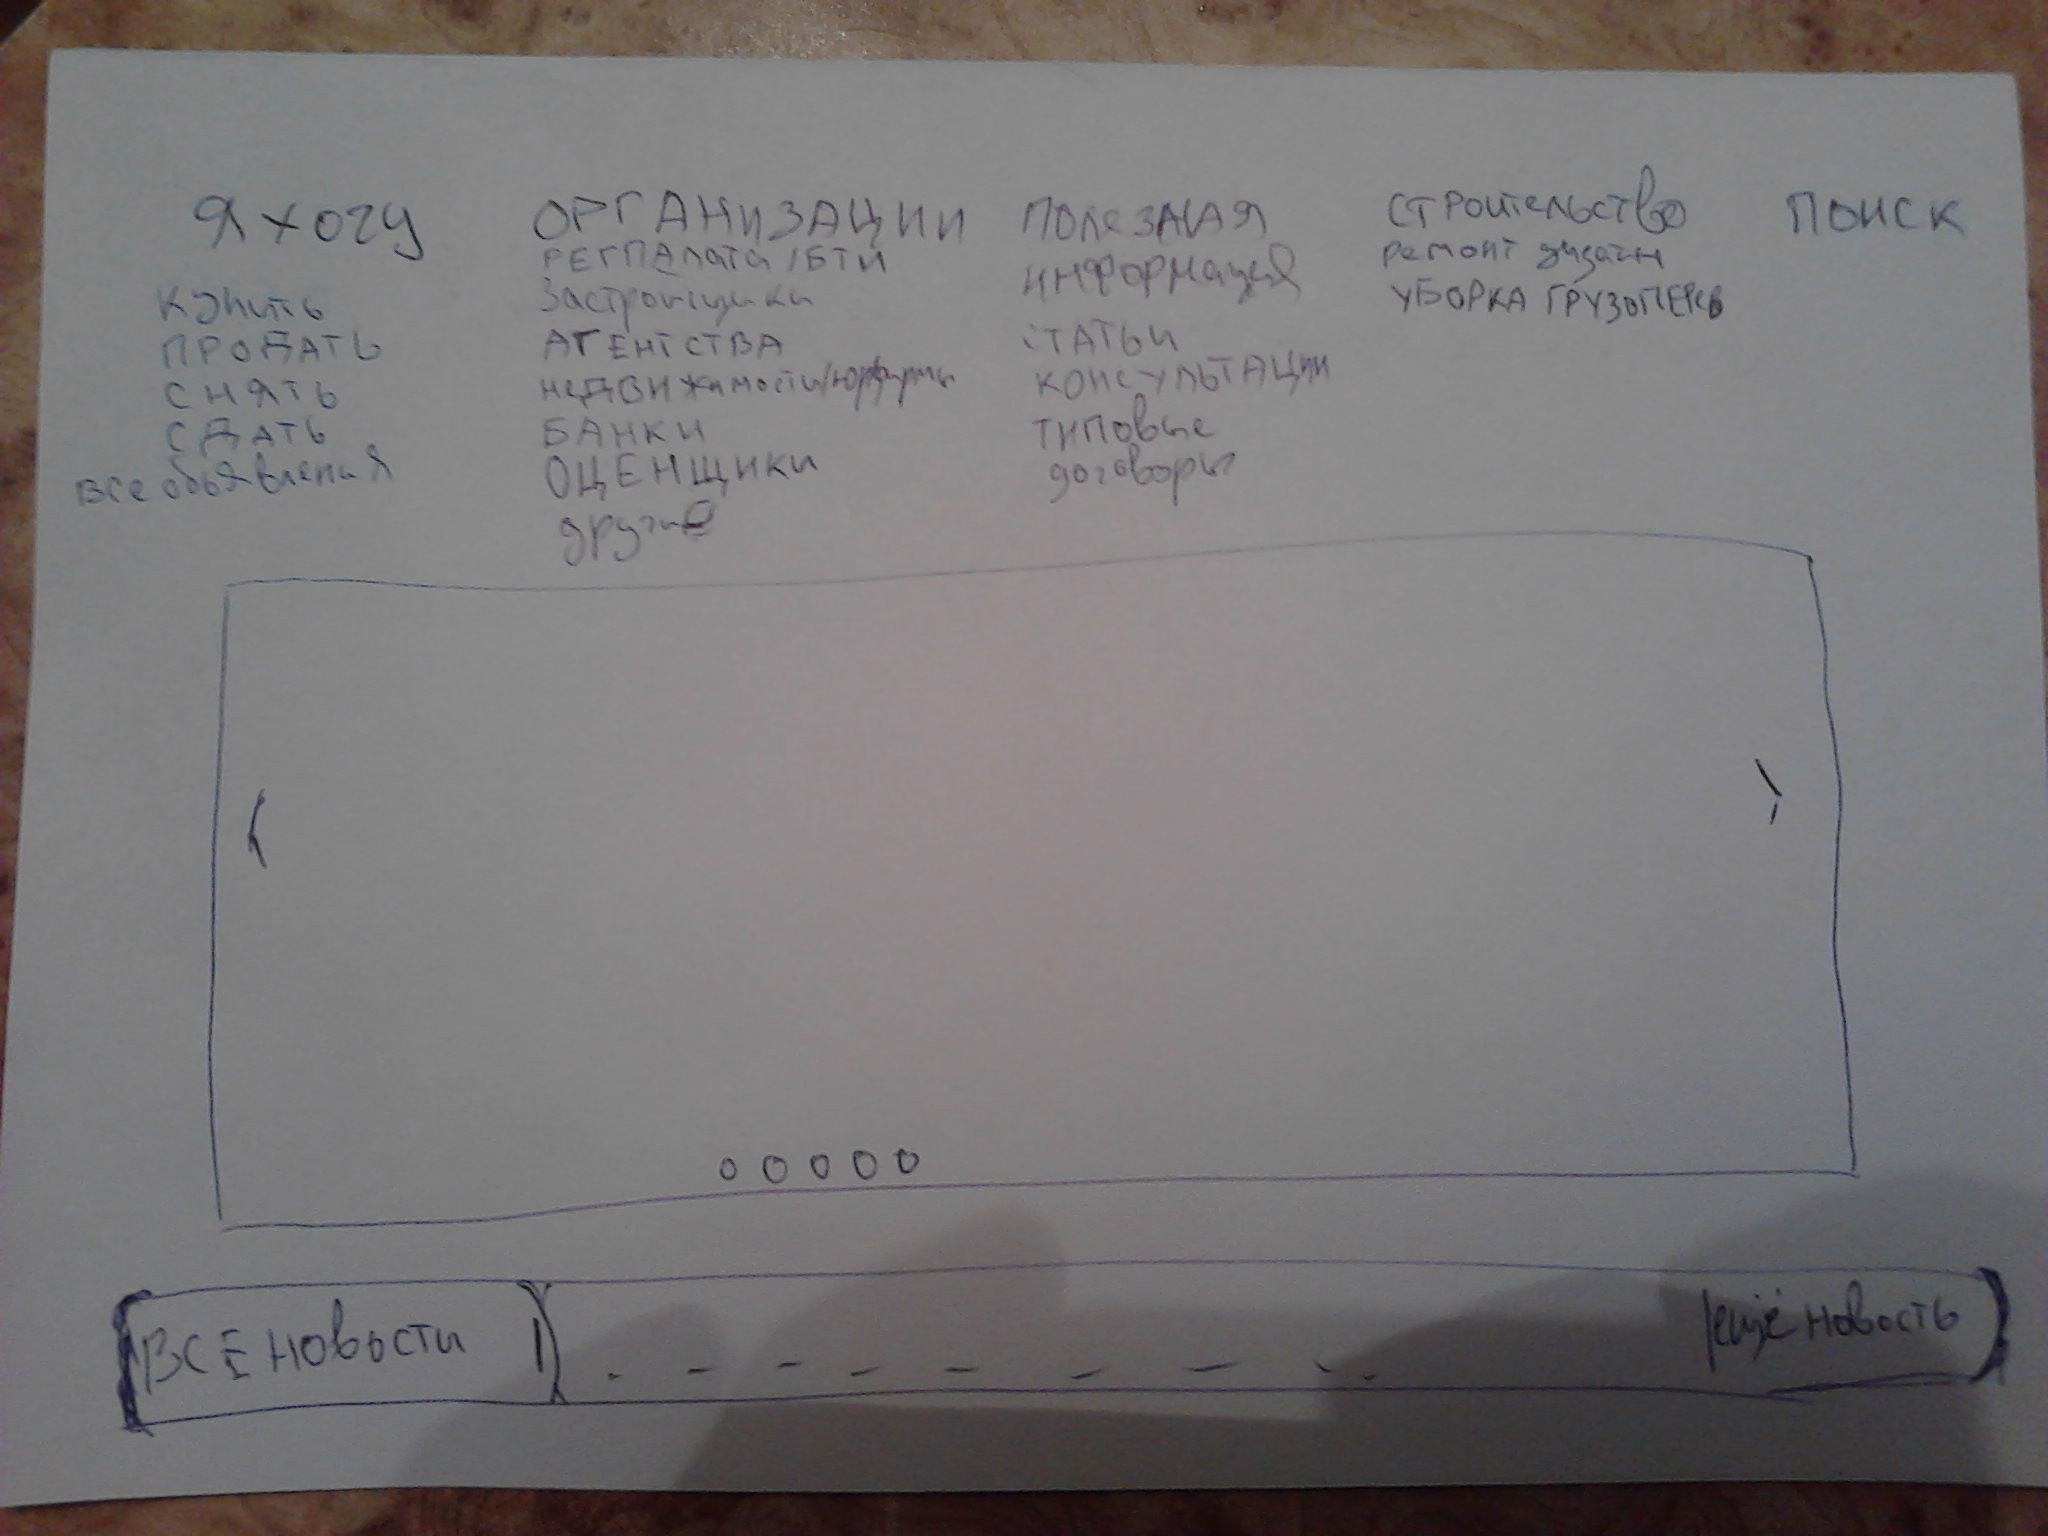 Я ХОЧУ
КУПИТЬ
ПРОДАТЬ
СНЯТЬ
СДАТЬ
все объявления
ОРГАНИЗАЦИИ
РЕГПАЛата / БТИ
Застройщики
АГЕНТСТВА
недвижимости/юрфирмы
БАНКИ
ОЦЕНЩИКИ
другие
Полезная
информация
СТАТЬИ
КОНСУЛЬТАЦИИ
ТИПОВЫЕ
договоры
Строительство
ремонт дизайн
УБОРКА ГРУЗОПЕРЕВ
ПОИСК
ВСЕ новости
ещё новость